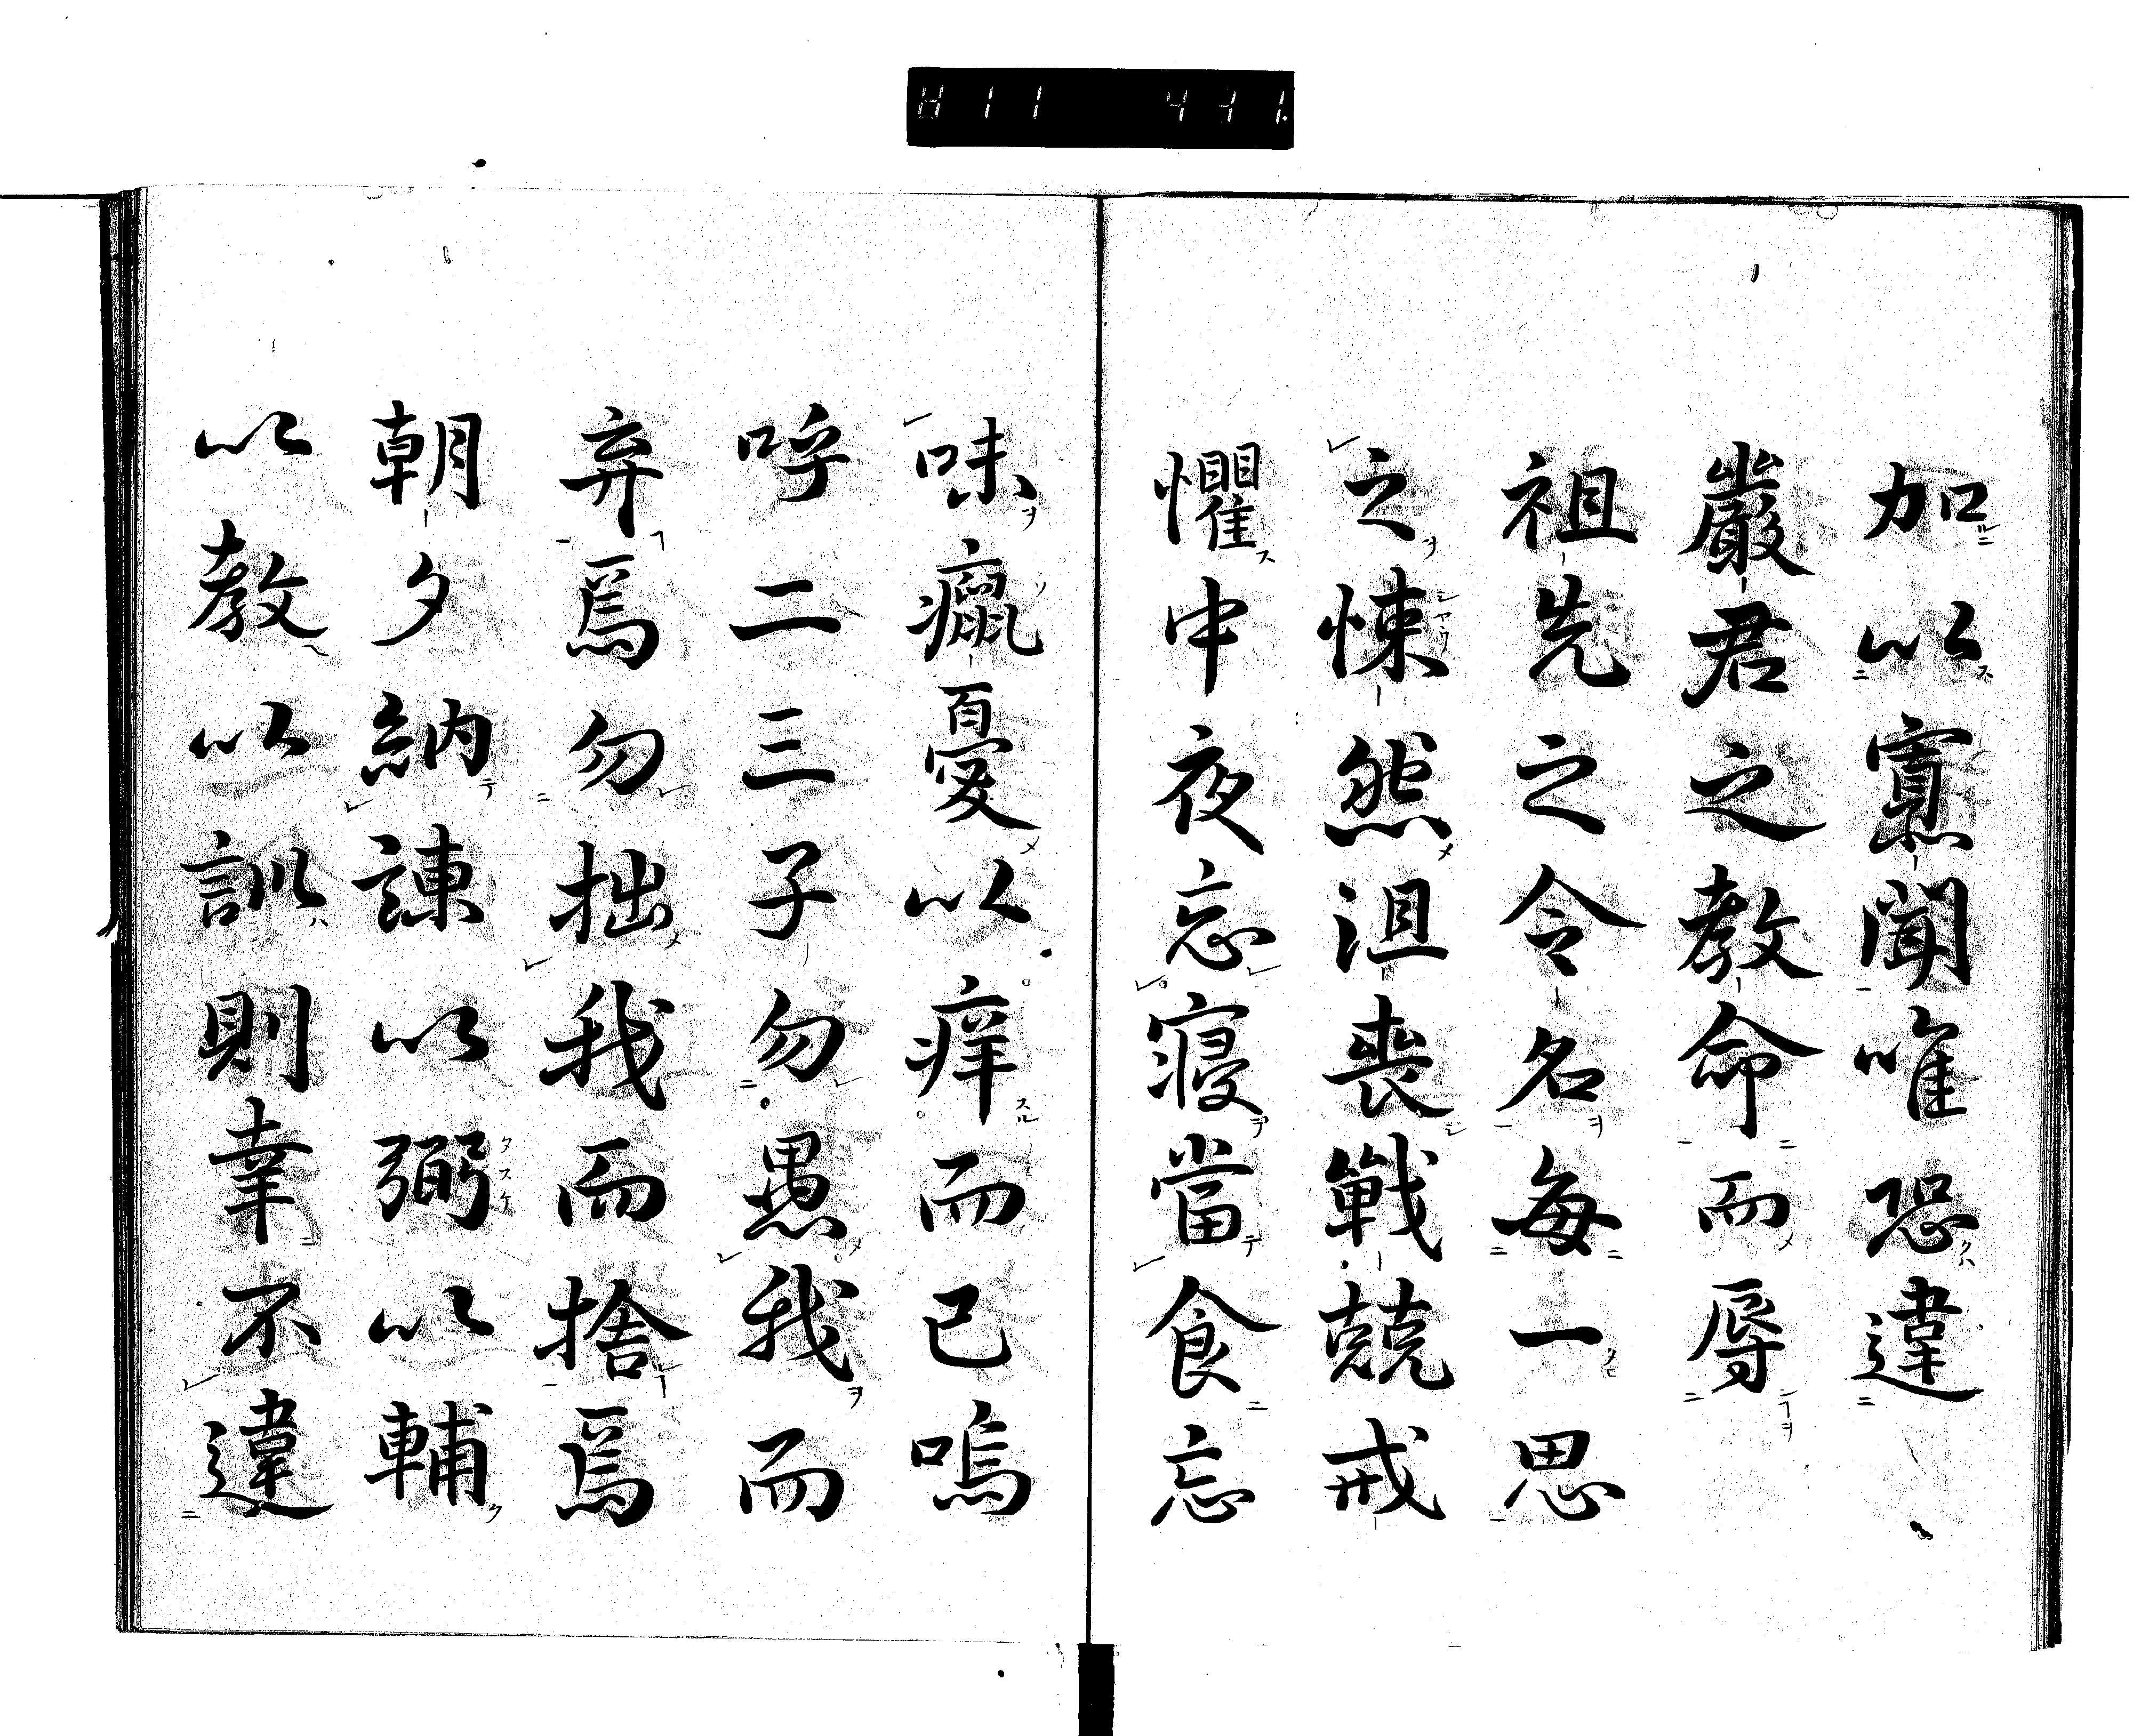 加以寡聞唯恐違
嚴君之教命而辱
祖先之令名每一思
之悚然沮喪戰兢戒
懼中夜忘寝當食忘
味癙憂以痒而已嗚
呼二三子勿愚我而
弃焉勿拙我而捨焉
朝夕納諫以弼以輔
以教以訓則幸不違